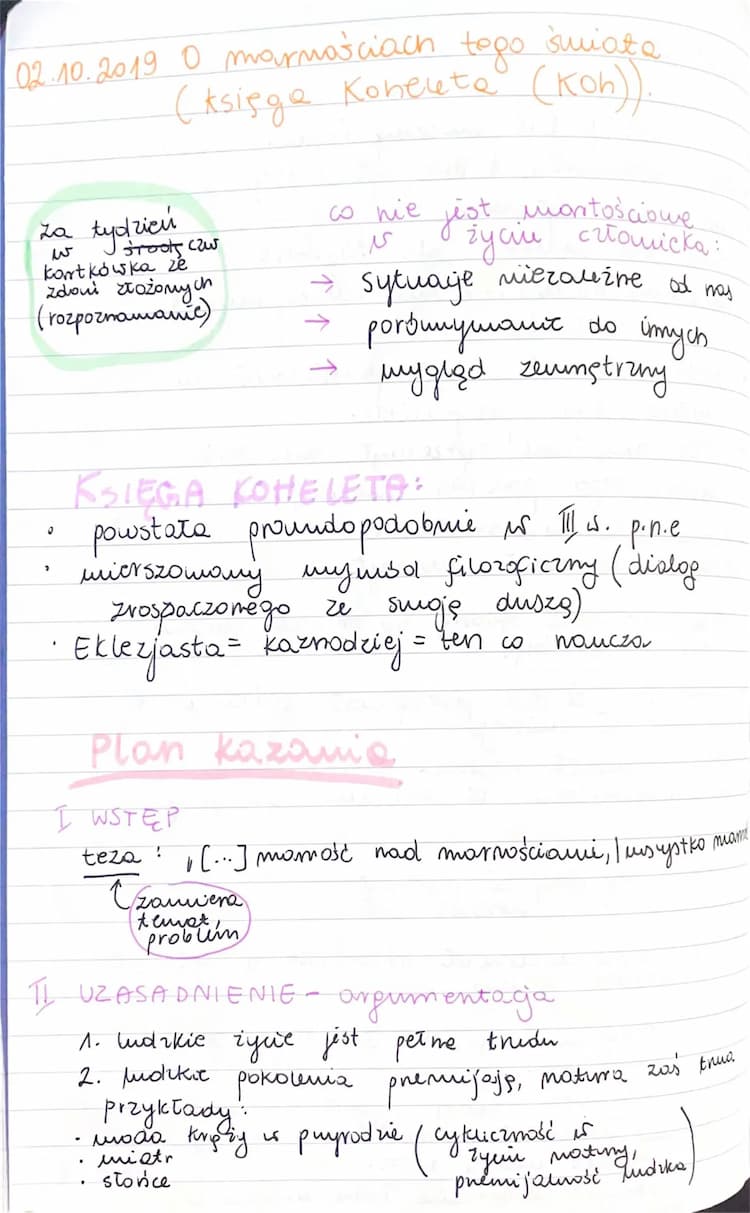 02.10.2019 O marnościach tego świata
(Księga Koheleta (Koh)).
Za tydzień
w środę czw
kartkówka ze
zdań złożonych
(rozpoznawanie)
co nie jest wartościowe
w życiu człowieka:
→ sytuacje niezależne od nas
→ porównywanie do innych
→ wygląd zewnętrzny
KSIĘGA KOHELETA:
• powstała prawdopodobnie w III w. p.n.e
• wierszowany wywód filozoficzny (dialog
zrospaczonego ze swoją duszą)
• Eklezjasta = kaznodziej = ten co naucza
Plan kazania
I WSTĘP
teza: „[...] marność nad marnościami, | wszystko marn
zawiera
temat,
problem
II UZASADNIENIE - argumentacja
1. ludzkie życie jest pełne trudu
2. ludzkie pokolenia przemijają, natura zaś trwa
przykłady:
• woda krąży w przyrodzie (cykliczność w
• wiatr życiu natury,
• słońce przemijalność ludzka)